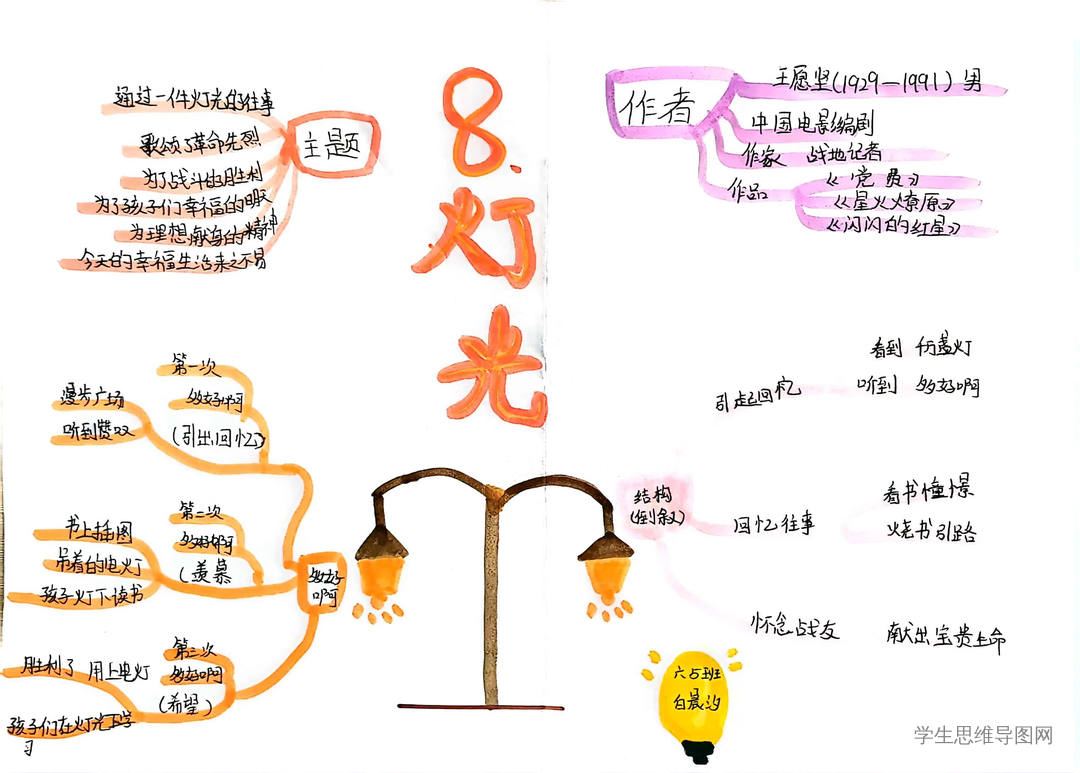 8.
灯
光
主题
通过一件灯光的往事
歌颂了革命先烈
为了战斗的胜利
为了孩子们幸福的明天
为理想献身的精神
今天的幸福生活来之不易
作者
王愿坚(1929—1991) 男
中国电影编剧
作家 战地记者
作品
《党员》
《星火燎原》
《闪闪的红星》
多好
啊
第一次
多好啊
(引出回忆)
漫步广场
听到赞叹
第二次
多好啊
(羡慕
书上插图
吊着的电灯
孩子灯下读书
第三次
多好啊
(希望)
胜利了 用上电灯
孩子们在灯光下学
习
结构
(倒叙)
引起回忆
看到 华灯
听到 多好啊
回忆往事
看书憧憬
火烧书引路
怀念战友
献出宝贵生命
六5班
白晨汐
学生思维导图网